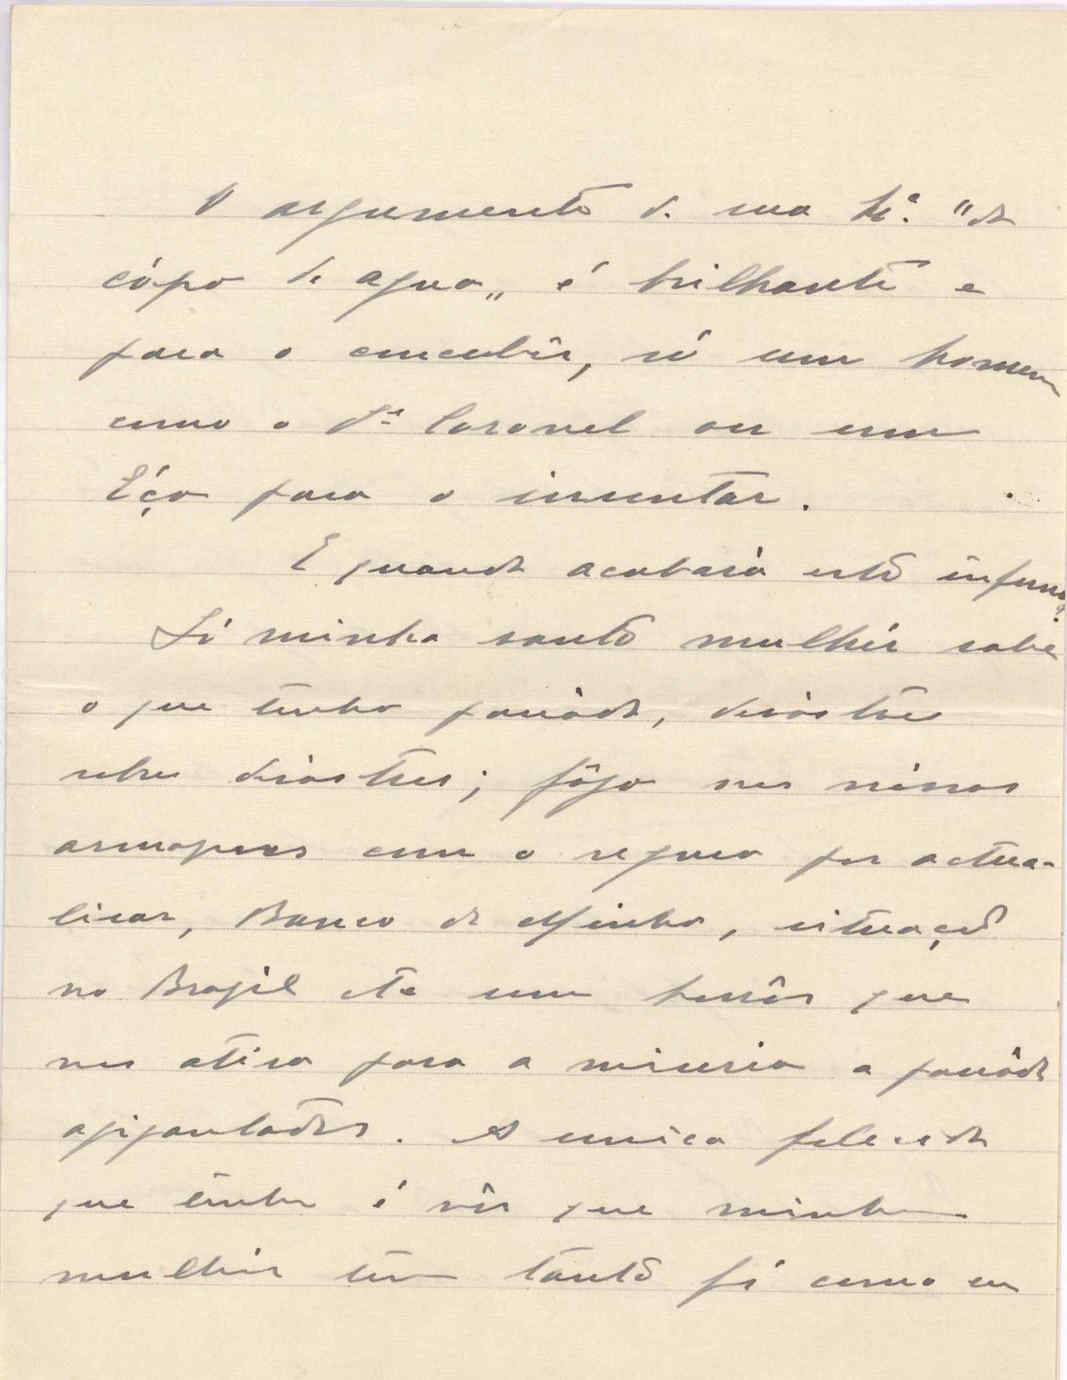 O argumento de sua tiª. "do
cópo de agua„ é brilhante e
para o conceber, só um homem
como o Sr. Coronel ou um
Eça para o inventar.
E quando acabará isto
Só minha santa mulhér sabe
o que tenho passádo, desástres
sobre desástres; fôgo nos nóssos
armazens com o seguro por actua-
lisar, Banco do Minho, situação
no Brazil etc um horrôr que
nos atira para a miseria a passos
agigantados. A unica felicidade
que tenho é vêr que minha
mulhér tem tanta fé como eu